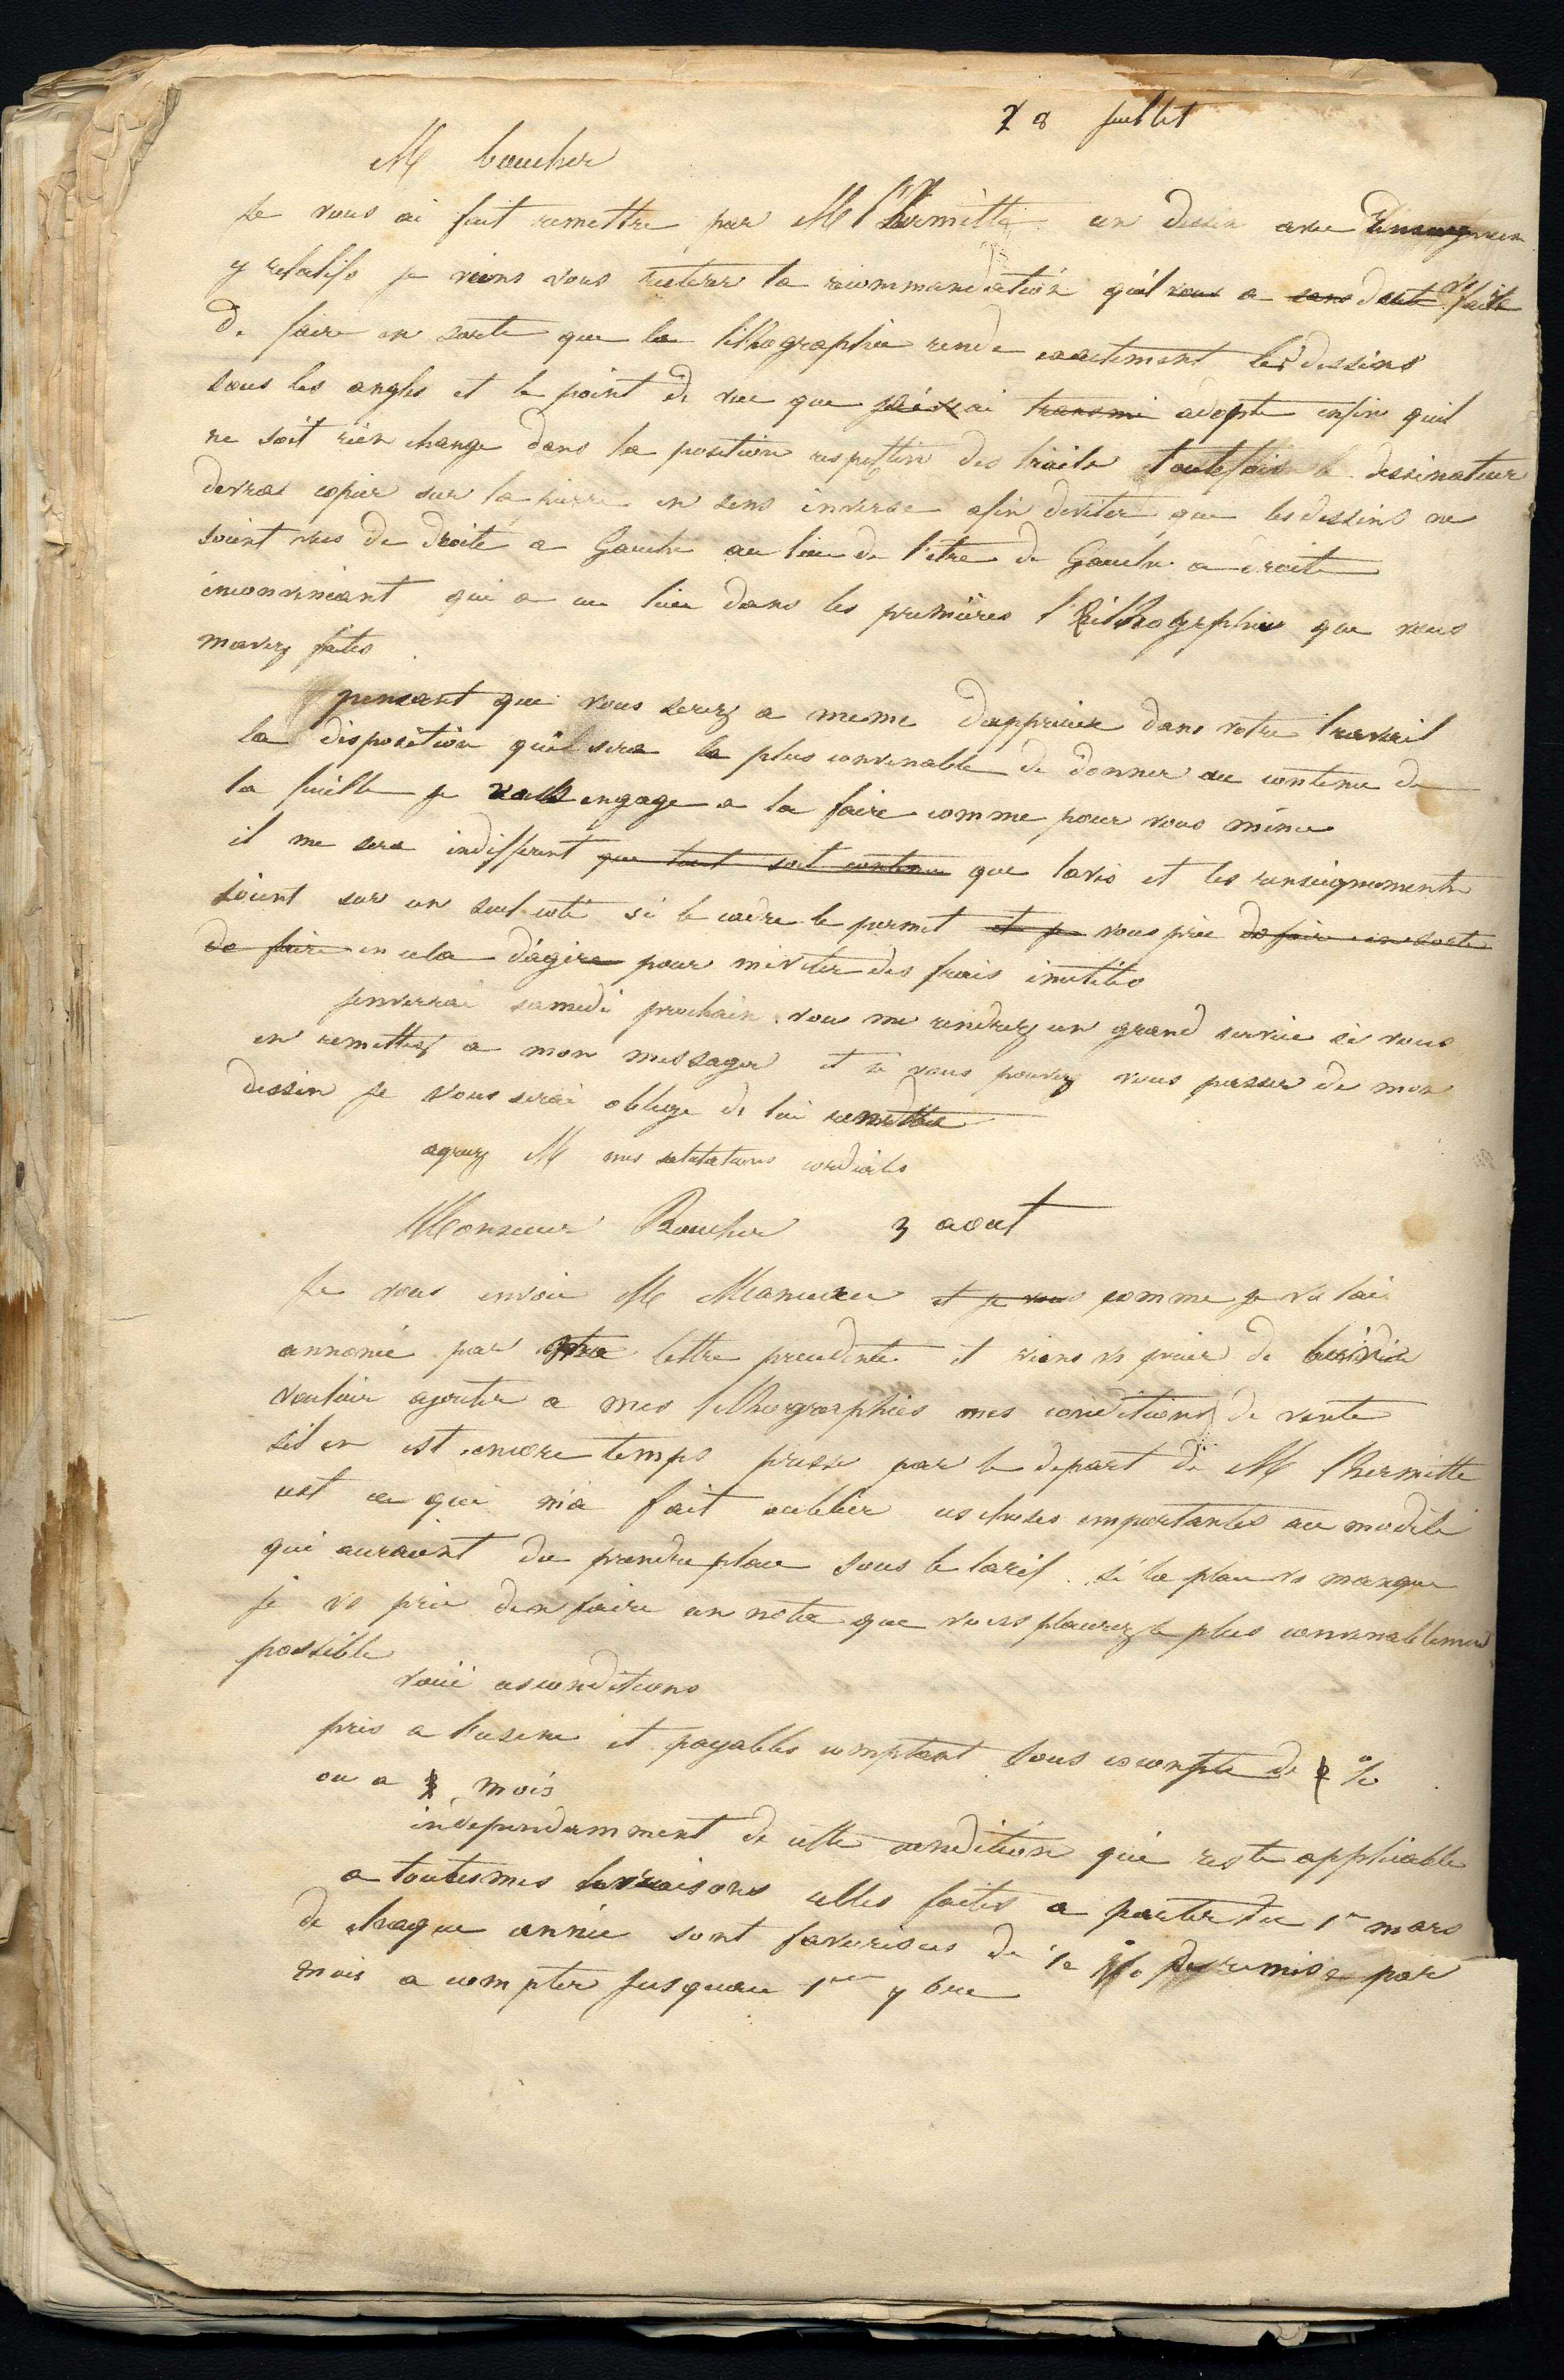 28 juillet
M boucher
Je vous ai fait remettre par M l'hermitte un dessin avec
y relatifs je viens vous reiterer la recommandation quil vous a sans doute faite
de faire en sorte que la lithographie rende exactement les dessins
sous les angles et le point de vue que j'ai transmi adopte enfin quil
ne soit rien change dans la position respective des traits toutefois le dessinateur
devra copier sur la pierre en sens inverse afin deviter que les dessins ne
soient vus de droite a Gauche au lieu de l'etre de Gauche a droite
inconveniant qui a eu lieu dans les premières lithographies que vous
mavez faites
pensant que vous serez a meme dapprecier dans votre travail
la disposition quil sera le plus convenable de donner au contenu de
la feuille je vous engage a la faire comme pour vous même
il me sera indifferent que tout soit contenu que lavis et les renseignements
soient sur un seul coté si le cadre le permet et je vous prie de faire en sorte
de faire en cela d'agire pour méviter des frais inutiles
jenverrai samedi prochain vous me rendrez un grand service si vous
en remettez a mon messager et si vous pouvez vous passer de mon
dessin je vous serai obligé de lui remettre
agreez M mes salutations cordiales
Monsieur Boucher 3 aout
Je vous envoie M et je vous comme je vs lai
annoncé par lettre precedente et viens vs prier de
vouloir ajouter a mes lithographies mes conditions de vente
sil en est encore temps pressé par le depart de M lhermitte
cest ce qui m'a fait oublier ces choses importantes au modele
qui auraient du prendre place sous le tarif. si la place vs manque
je vs prie den faire un nota que vous placerez le plus convenablement
possible
voici ces conditions
pris a l'usine et payables comptant sous escompte de %
ou a mois
independamment de cette condition qui reste applicable
a toutes mes livraisons celles faites a partir du 1er mars
de chaque année sont favorisees de % de remise par
mois a compter jusquau 1er 7bre